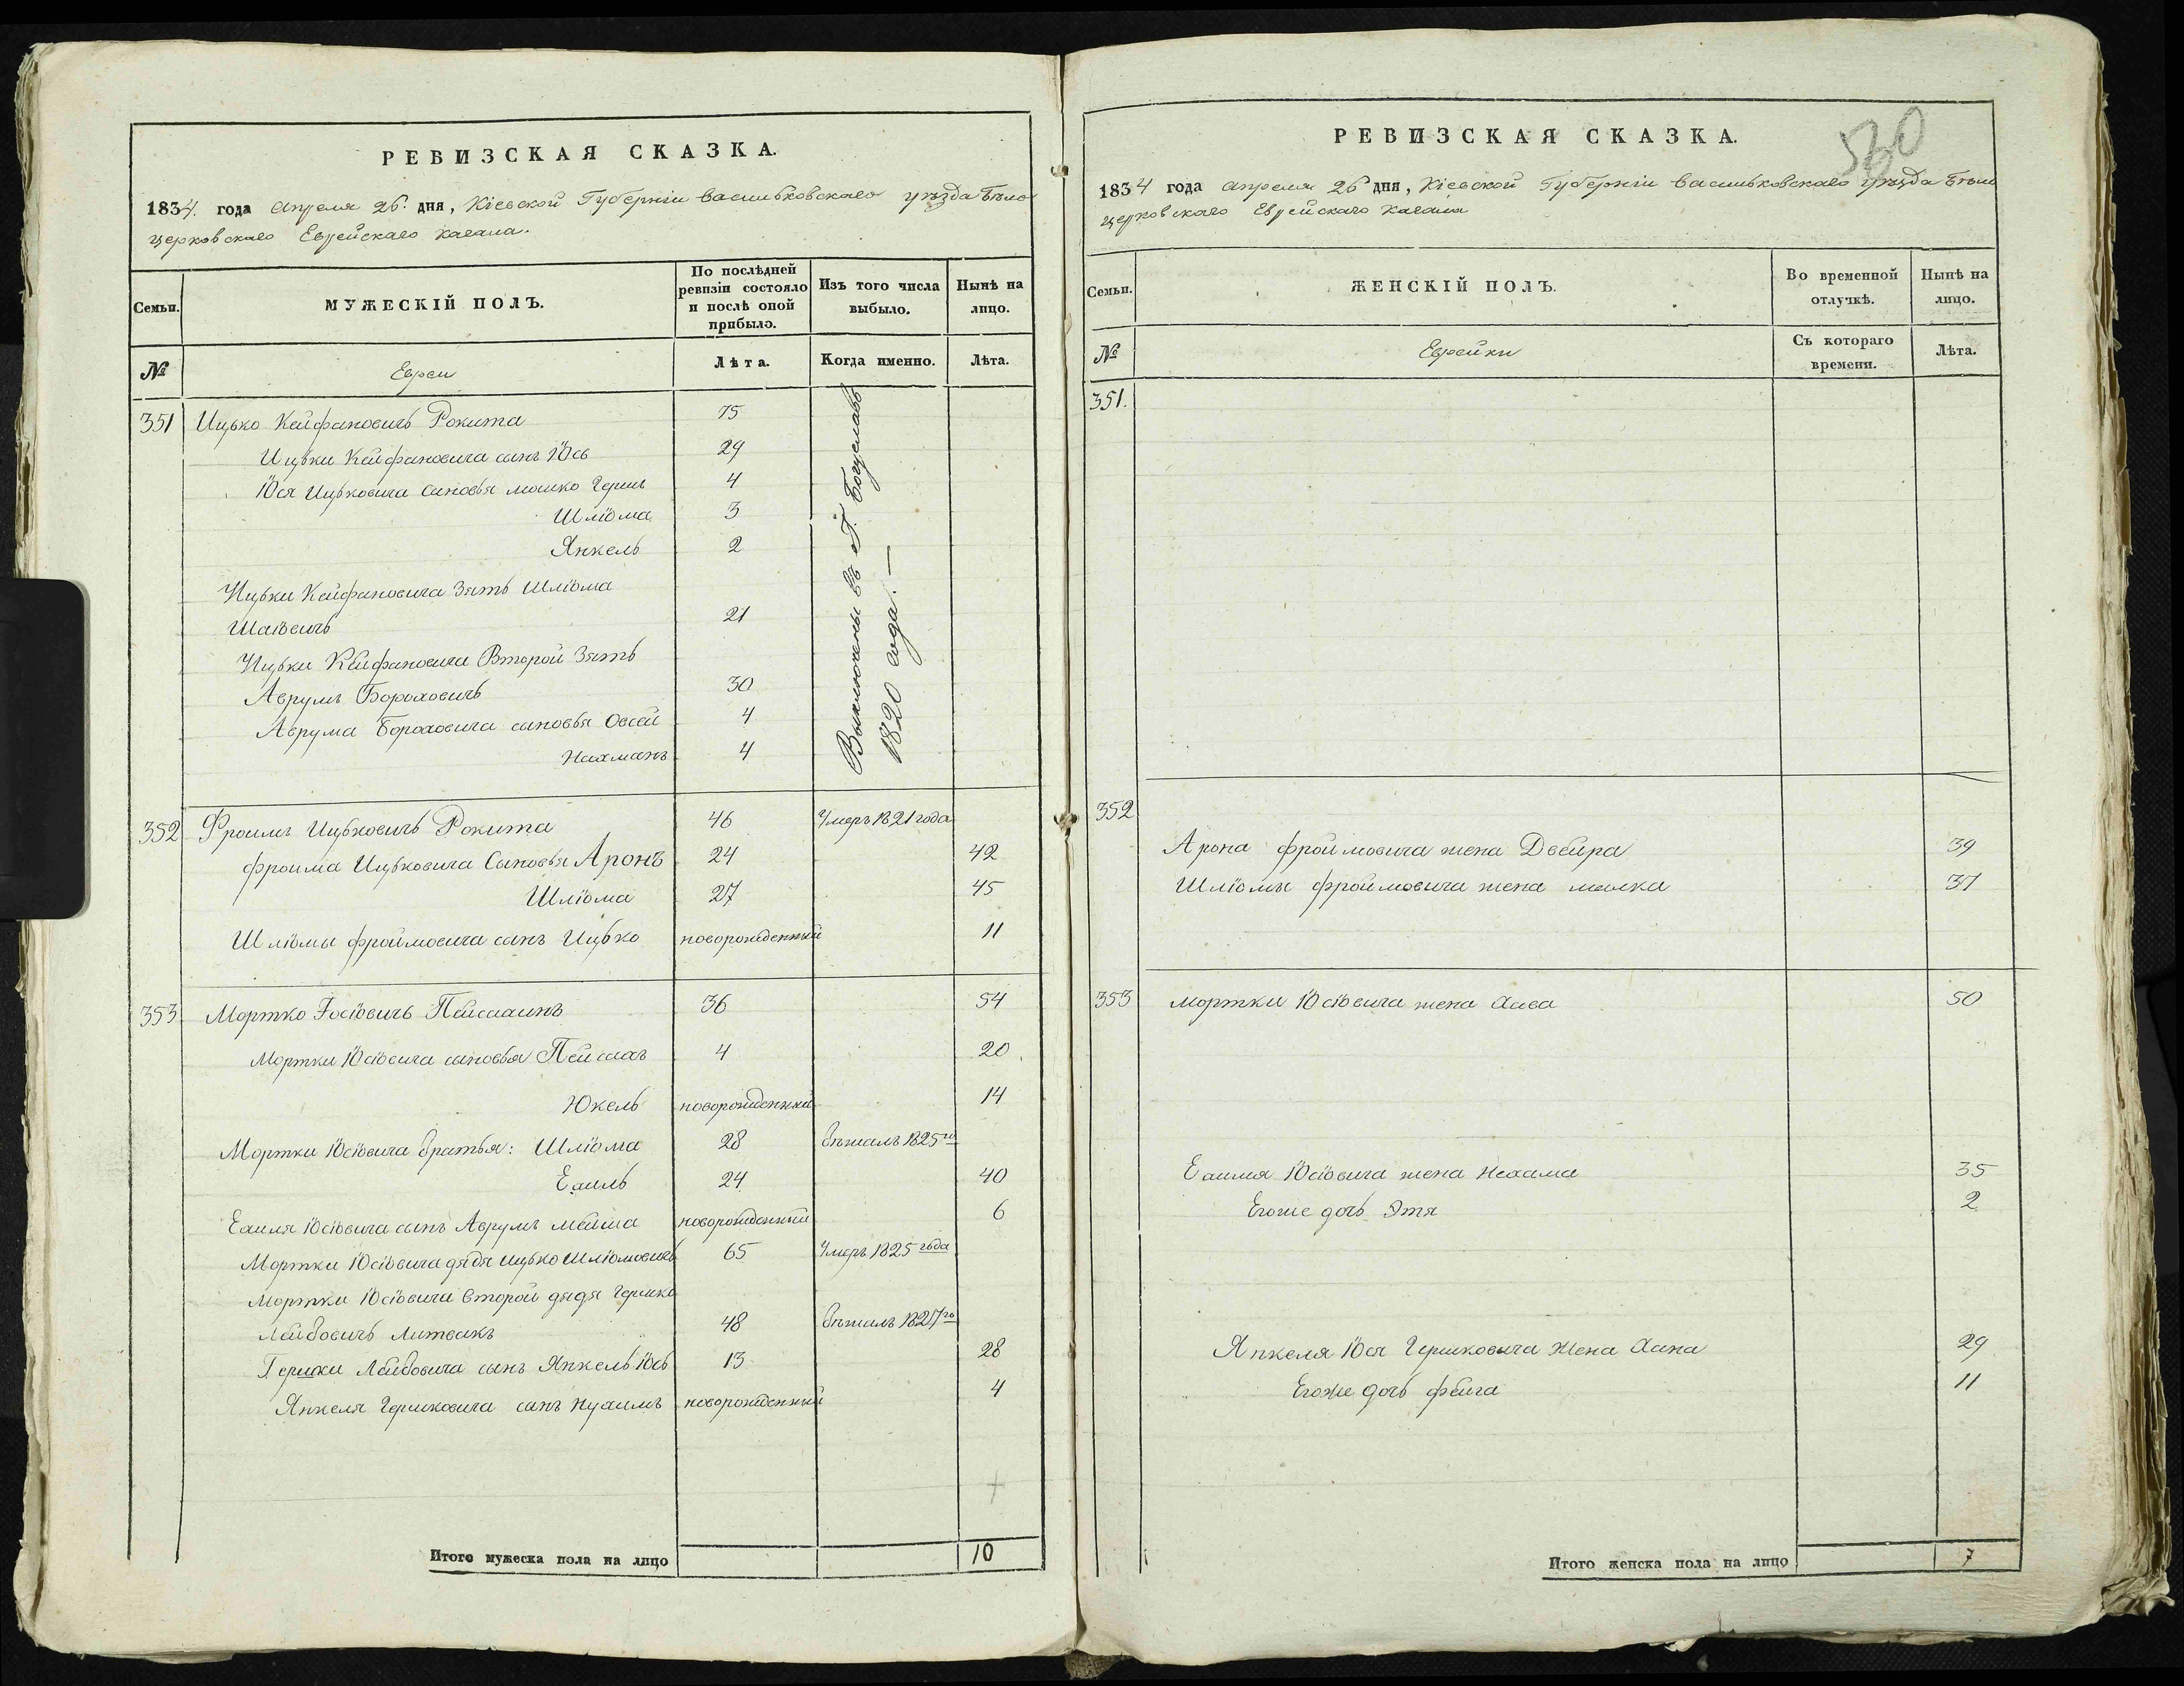 РЕВИЗСКАЯ СКАЗКА.
1834. года Апреля 26. дня, Кіевской Губерніи Васильковскаго уѣзда Бѣло
церковскаго Еврейскаго Кагала.
Семьи.
МУЖЕСКІЙ ПОЛЪ.
По послѣдней
ревизіи состояло
и послѣ оной
прибыло.
Изъ того числа
выбыло.
Нынѣ на
лицо.
№
Евреи
Лѣта.
Когда именно.
Лѣта.
351 Ицько Кейфановичъ Рокита 75
Ицьки Кейфановича сынъ Іось 29
Іося Ицьковича Сыновья Мошко Герш 4
Шліома 3
Янкель 2
Ицьки Кейфановича Зять Шліома
21
Ицьки Кейфановича Второй Зять
Аврумъ Бороховичъ 30
Аврума Бороховича сыновья Овсей 4
Нахманъ 4
Выключены въ Г. Богуславъ
1820 года. —
352 Фроимъ Ицьковичъ Рокита 46 Умеръ 1821 года
Фроима Ицьковича Сыновья Аронъ 24 42
Шліома 27 45
Шліомы Фроимовича сынъ Ицько новорожденный 11
353 Мортко Іосіовичъ Пейсахинъ 36 54
Мортки Іосіовича сыновья Пейсахъ 4 20.
Юкель новорожденный 14
Мортки Іосіовича братья: Шліома 28 бѣжалъ 1825го
Ехиль 24 40
Ехиля Іосіовича сынъ Аврумъ Мейша новорожденный 6
Мортки Іосіовича дядя Ицько Шліомовичъ 65 Умеръ 1825 года
Мортки Іосіовича второй дядя Гершко
Лейбовичъ Литвакъ 48 бѣжалъ 1827го
Гершки Лейбовича сынъ Янкель Іось 13 28
Янкеля Гершковича сынъ Нухимъ новорожденный 4
Итого мужеска пола на лицо 10
560
РЕВИЗСКАЯ СКАЗКА.
1834 года Апреля 26 дня, Кіевской Губерніи Васильковскаго уѣзда Бѣло
церковскаго Еврейскаго Кагала
Семьи.
ЖЕНСКІЙ ПОЛЪ.
Во временной
отлучкѣ.
Нынѣ на
лицо.
№
Еврейки
Съ котораго
времени.
Лѣта.
351.
352
Арона Фроймовича жена Двейра 39
Шліомы Фроймовича жена Малка 37
353 Мортки Іосіовича жена Хава 50
Ехиля Іосіовича жена Нехама 35
Егоже дочь Этя 2
Янкеля Іося Гершковича Жена Хана 29
Егоже дочь Фейга 11
Итого женска пола на лицо 7